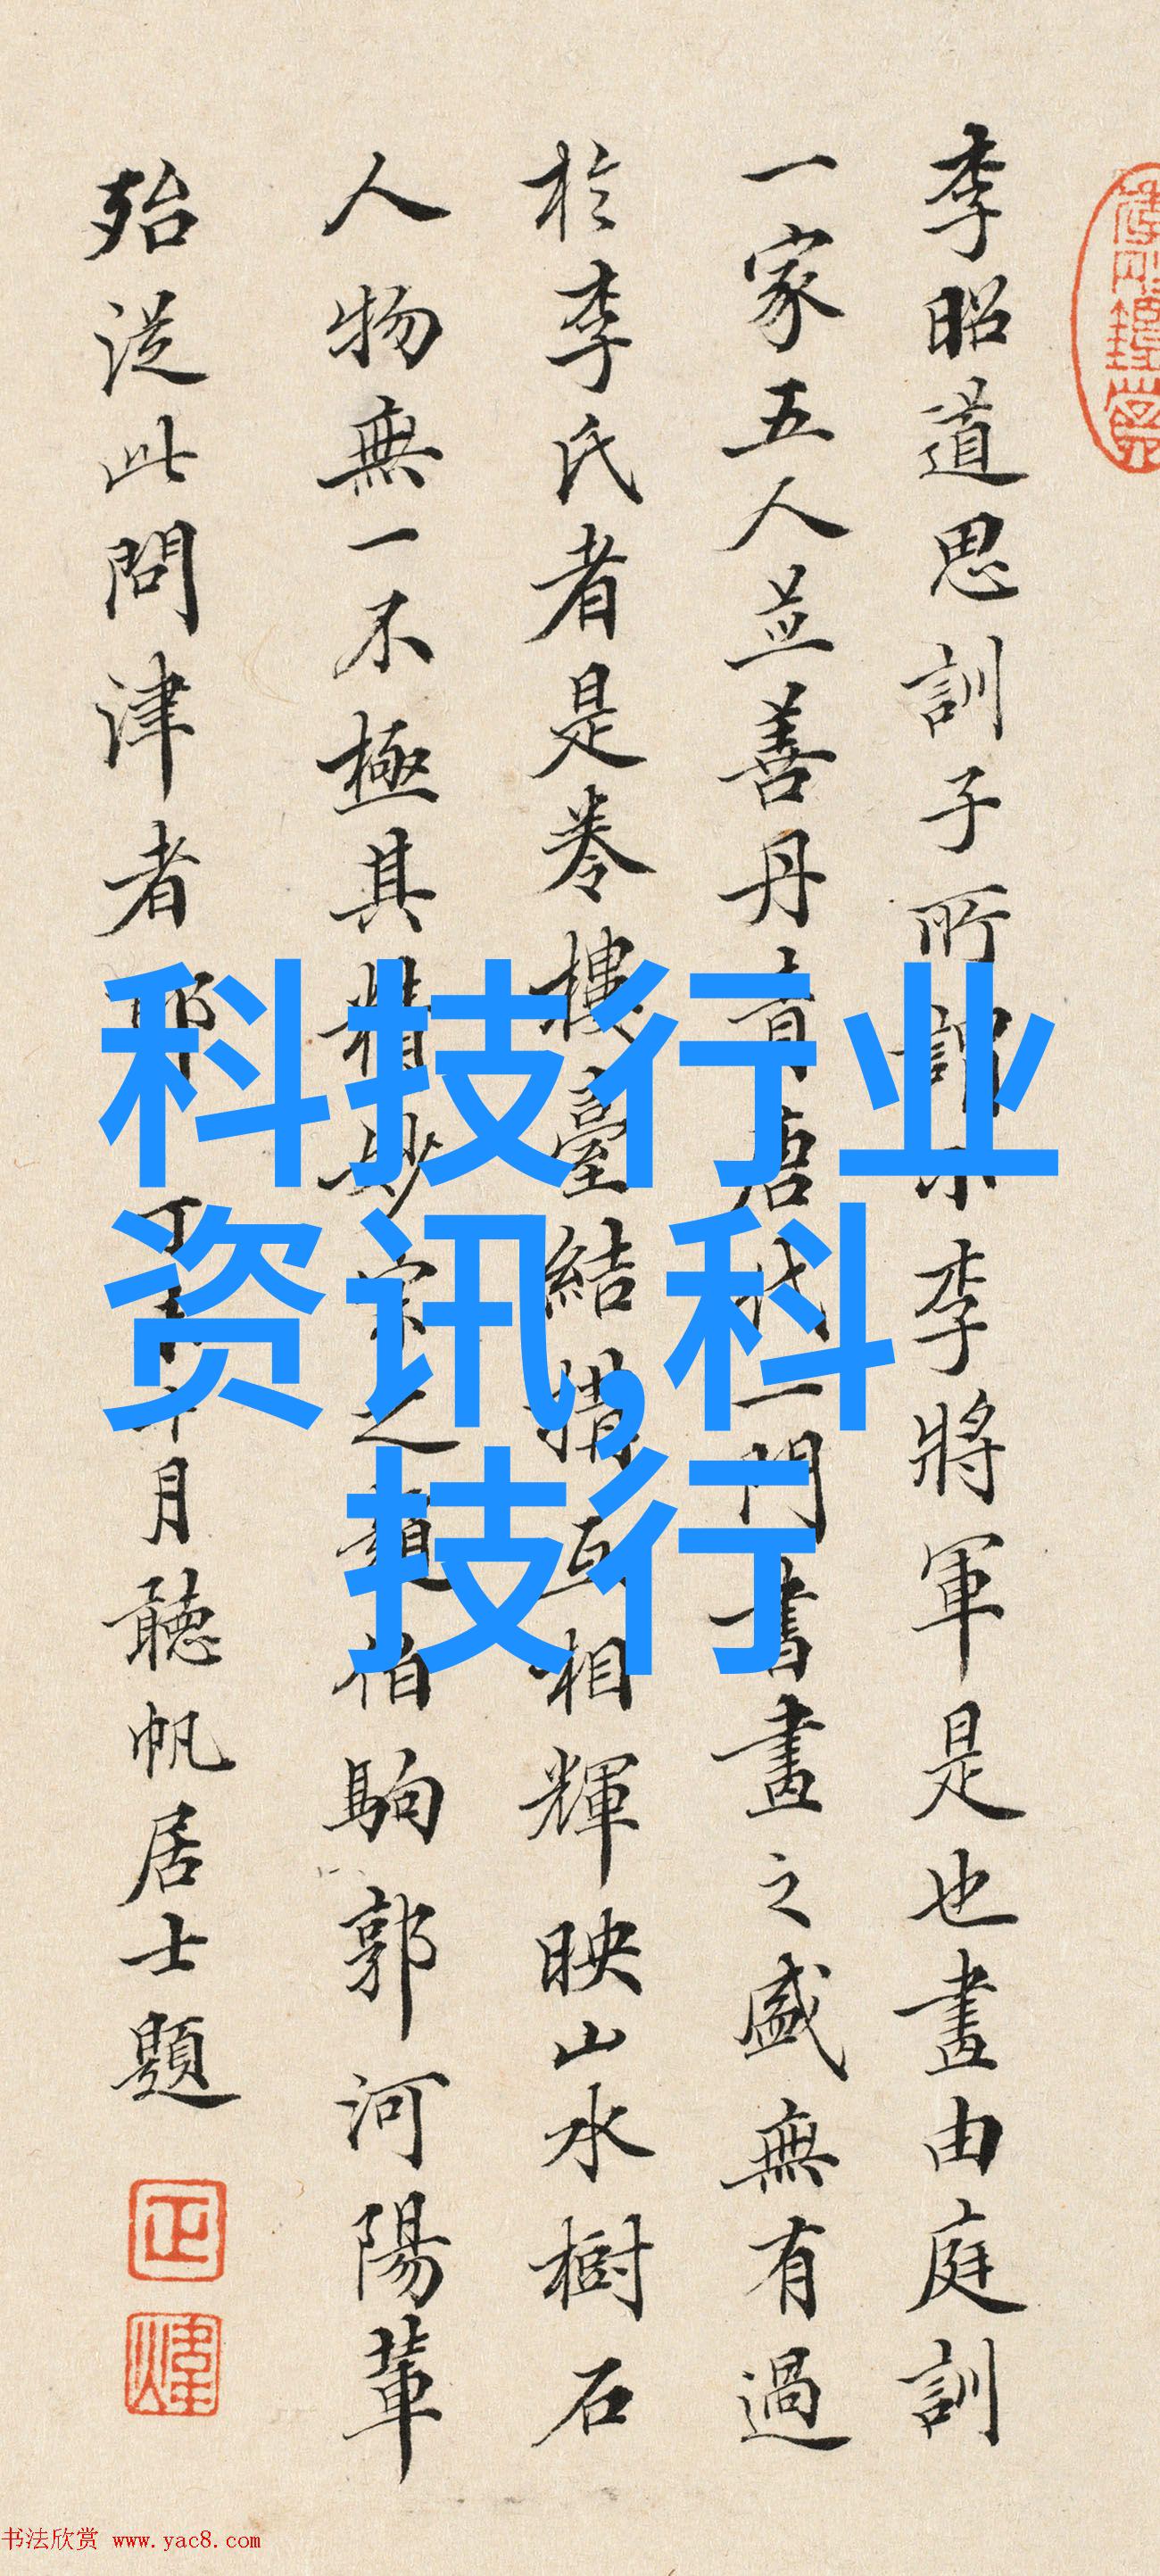 李昭道思訓子所謂小李將軍是也畫由庭訓
一家五人並善丹青唐代一門書畫之盛無有過
於李氏者是卷樓臺結搆互相輝映山水樹石
人物無一不極其精妙宋之趙伯駒郭河陽輩
殆從此問津者耶 丁 月聽帆居士題
正
煒
科技行业
资讯,科
技行
书法欣赏 www.yac8.com